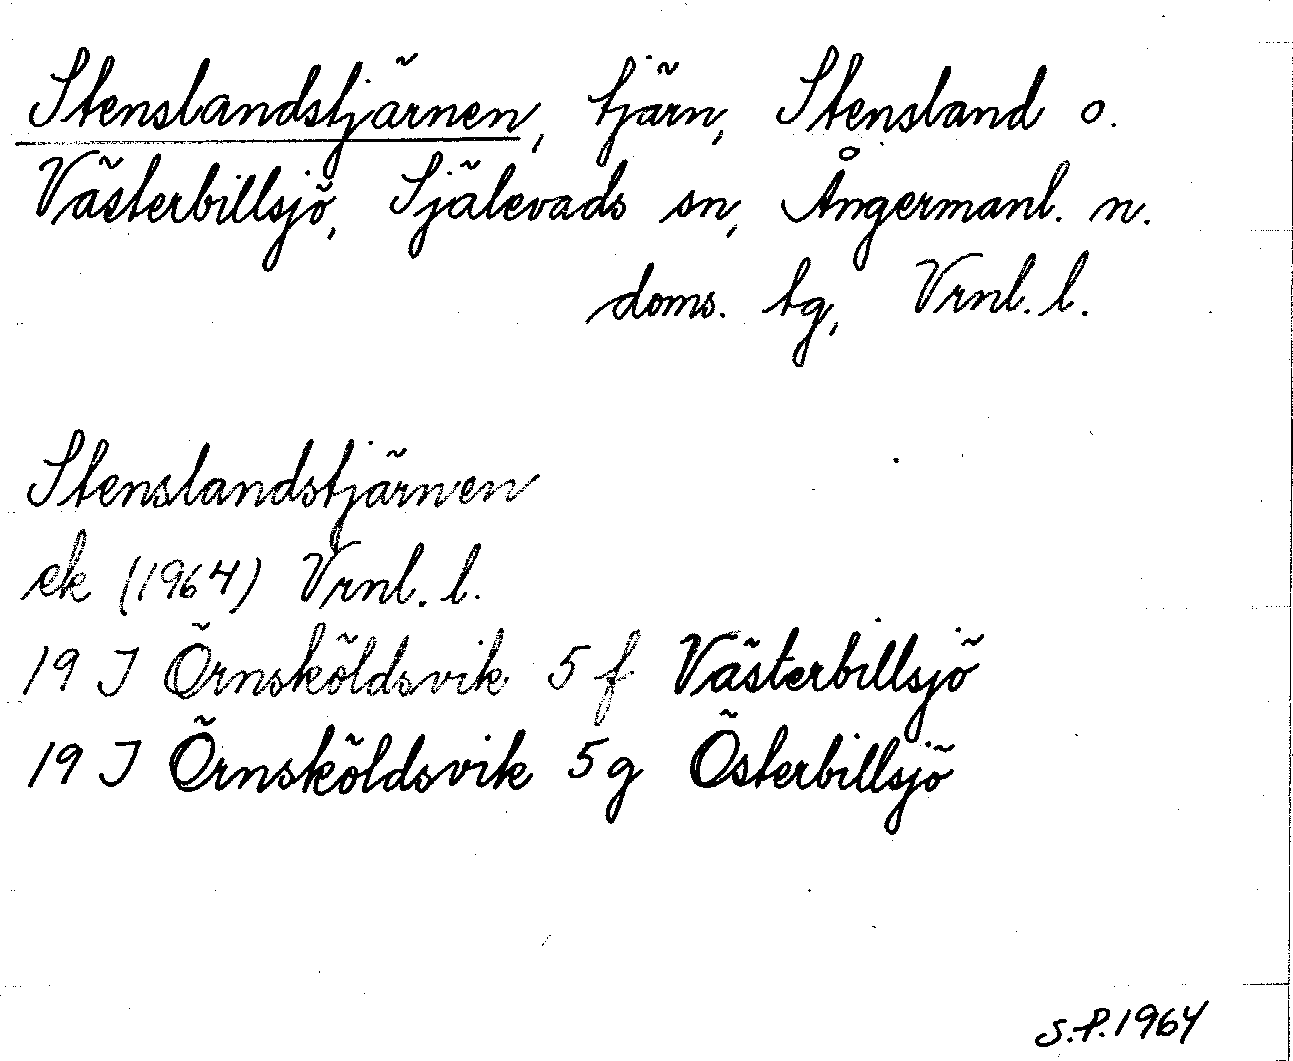 Stenslandstjärnen, tjärn, Stensland o.
Västerbillsjö, Själevads sn, Ångermanl. n.
doms. tg, Vrnl. l.
Stenslandstjärnen
ek (1964) Vrnl. l.
19 J Örnsköldsvik 5 f Västerbillsjö
19 J Örnsköldsvik 5 g Österbillsjö
S.P. 1964